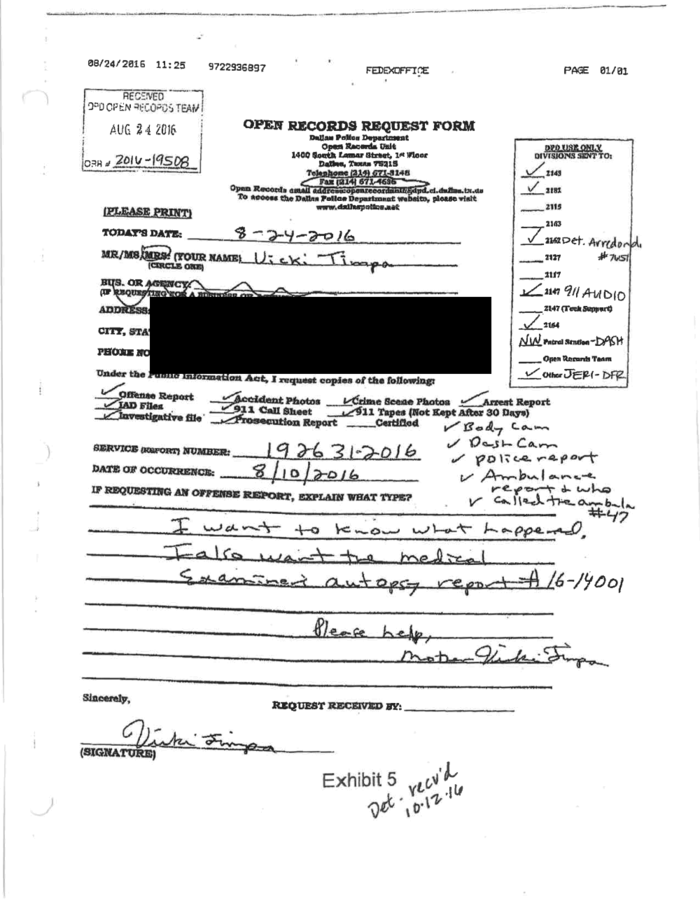 08/24/2016 11:25 9722936897 FEDEXOFFICE PAGE 01/01
RECEIVED
DPD OPEN RECORDS TEAM
AUG 24 2016
ORR # 2016-19508
OPEN RECORDS REQUEST FORM
Dallas Police Department
Open Records Unit
1400 South Lamar Street, 1st Floor
Dallas, Texas 75215
Telephone (214) 671-3145
Fax (214) 671-4636
Open Records email
To access the Dallas Police Department website, please visit
www.dallaspolice.net
DPD USE ONLY
DIVISIONS SENT TO:
2143
2152
2115
2163
2162 Det. Arredondo
2127 #7451
2117
2147 911 AUDIO
2147 (Tech Support)
2164
NW Patrol Station - DASH
Open Records Team
Other JERI - DFR
(PLEASE PRINT)
TODAY'S DATE: 8-24-2016
MR/MS/MRS: (YOUR NAME) Vicki Timpa
(CIRCLE ONE)
BUS. OR AGENCY
(IF REQUESTING FOR A BUSINESS OR
ADDRESS:
CITY, STA
PHONE NO
Under the Public Information Act, I request copies of the following:
Offense Report Accident Photos Crime Scene Photos Arrest Report
IAD Files 911 Call Sheet 911 Tapes (Not Kept After 30 Days)
Investigative file Prosecution Report Certified
Body Cam
Dash Cam
police report
Ambulance
report & who
called the ambula
#47
SERVICE (REPORT) NUMBER: 192631-2016
DATE OF OCCURRENCE: 8/10/2016
IF REQUESTING AN OFFENSE REPORT, EXPLAIN WHAT TYPE?
I want to know what happened.
I also want the medical
Examiners autopsy report # 16-14001
Please help,
Mother Vicki Timpa
Sincerely,
REQUEST RECEIVED BY:
Vicki Timpa
(SIGNATURE)
Exhibit 5
Det. recv'd
10.12.16